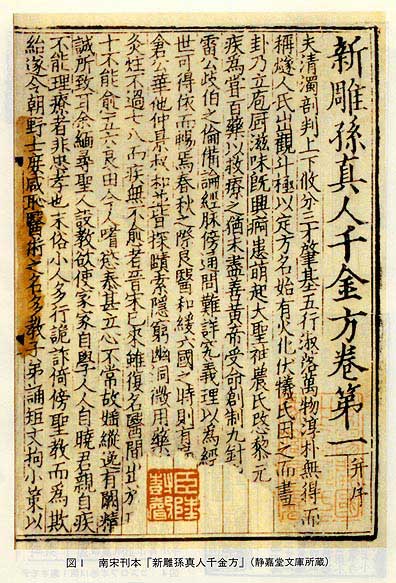 新雕孫真人千金方卷第一 并序
夫清濁剖判上下攸分三才肇基五行淑落萬物淳朴無得而
稱燧人氏出觀斗極以定方名始有火化伏犧氏因之而畫
卦乃立庖厨滋味旣興痾患萌起大聖神農氏愍黎元
疾為嘗百藥以救療之猶未盡善黄帝受命創制九針
雷公歧伯之倫俻論經脉傍通問難詳究義理以為經
世可得依而暢焉春秋之際良醫和緩六國之時則有
倉公華他仲景叔和並皆探賾索隱窮幽洞微用藥
灸炷不過七八而疾無不愈者晉宋已來雖復名醫間出
十不能愈五六良由今人嗜慾泰甚立心不常放縱逸有闕
誠所致耳余緬尋聖人設教欲使家家自學人人自曉君親有疾
不能理療者非忠孝也末俗小人多行詭詐倚傍聖教而為欺
紿遂令朝野士庶咸恥醫術之名多教子弟誦短文拘小策以
臣陸
図1 南宋刊本「新雕孫真人千金方」(静嘉堂文庫所蔵)